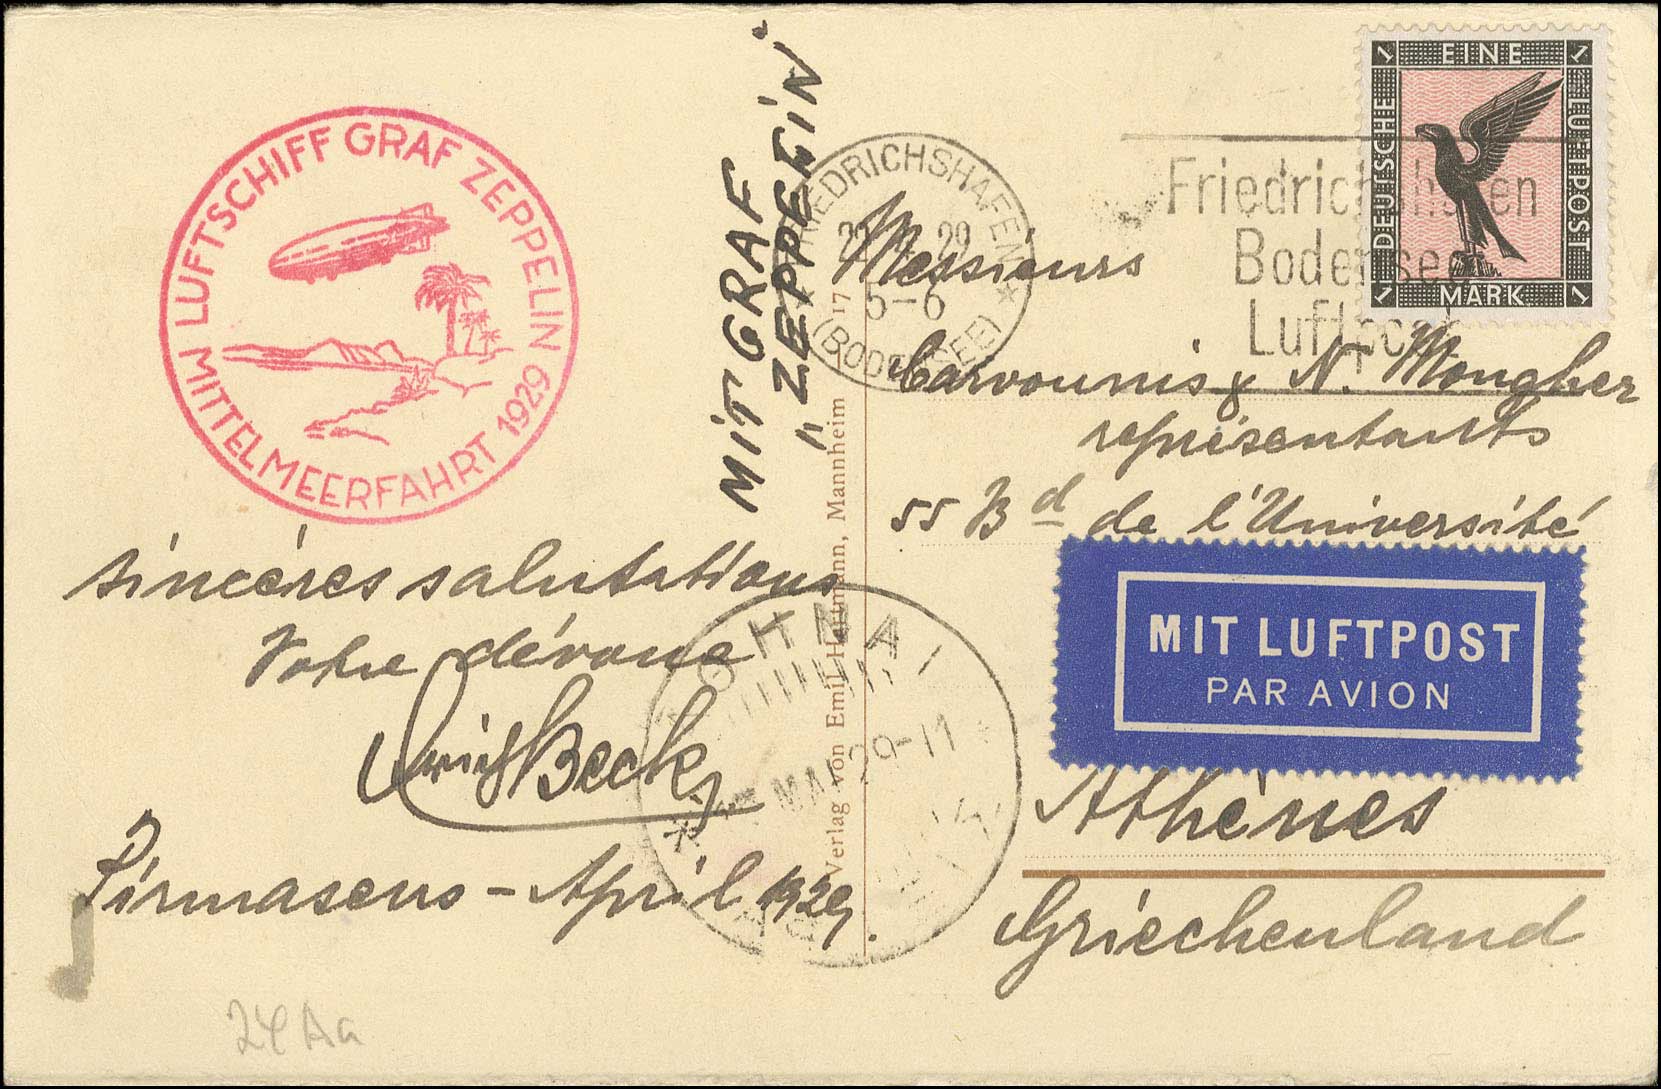 LUFTSCHIFF GRAF ZEPPELIN
MITTELMEERFAHRT 1929
MIT GRAF
"ZEPPELIN"
FRIEDRICHSHAFEN
29
5-6
(BODENSEE)
Friedrichshafen
Bodensee
Luftpost
1 EINE 1
DEUTSCHE
LUFTPOST
1 MARK 1
Messieurs
Carvounis & N. Mongher
représentants
55 Bd de l'Université
MIT LUFTPOST
PAR AVION
Athènes
Griechenland
sincéres salutations
Votre dévoué
Beck
Pirmasens - April 1929.
ΑΘΗΝΑΙ
MAI 29-11
Verlag von Emil Hartmann, Mannheim 17
24 Aa